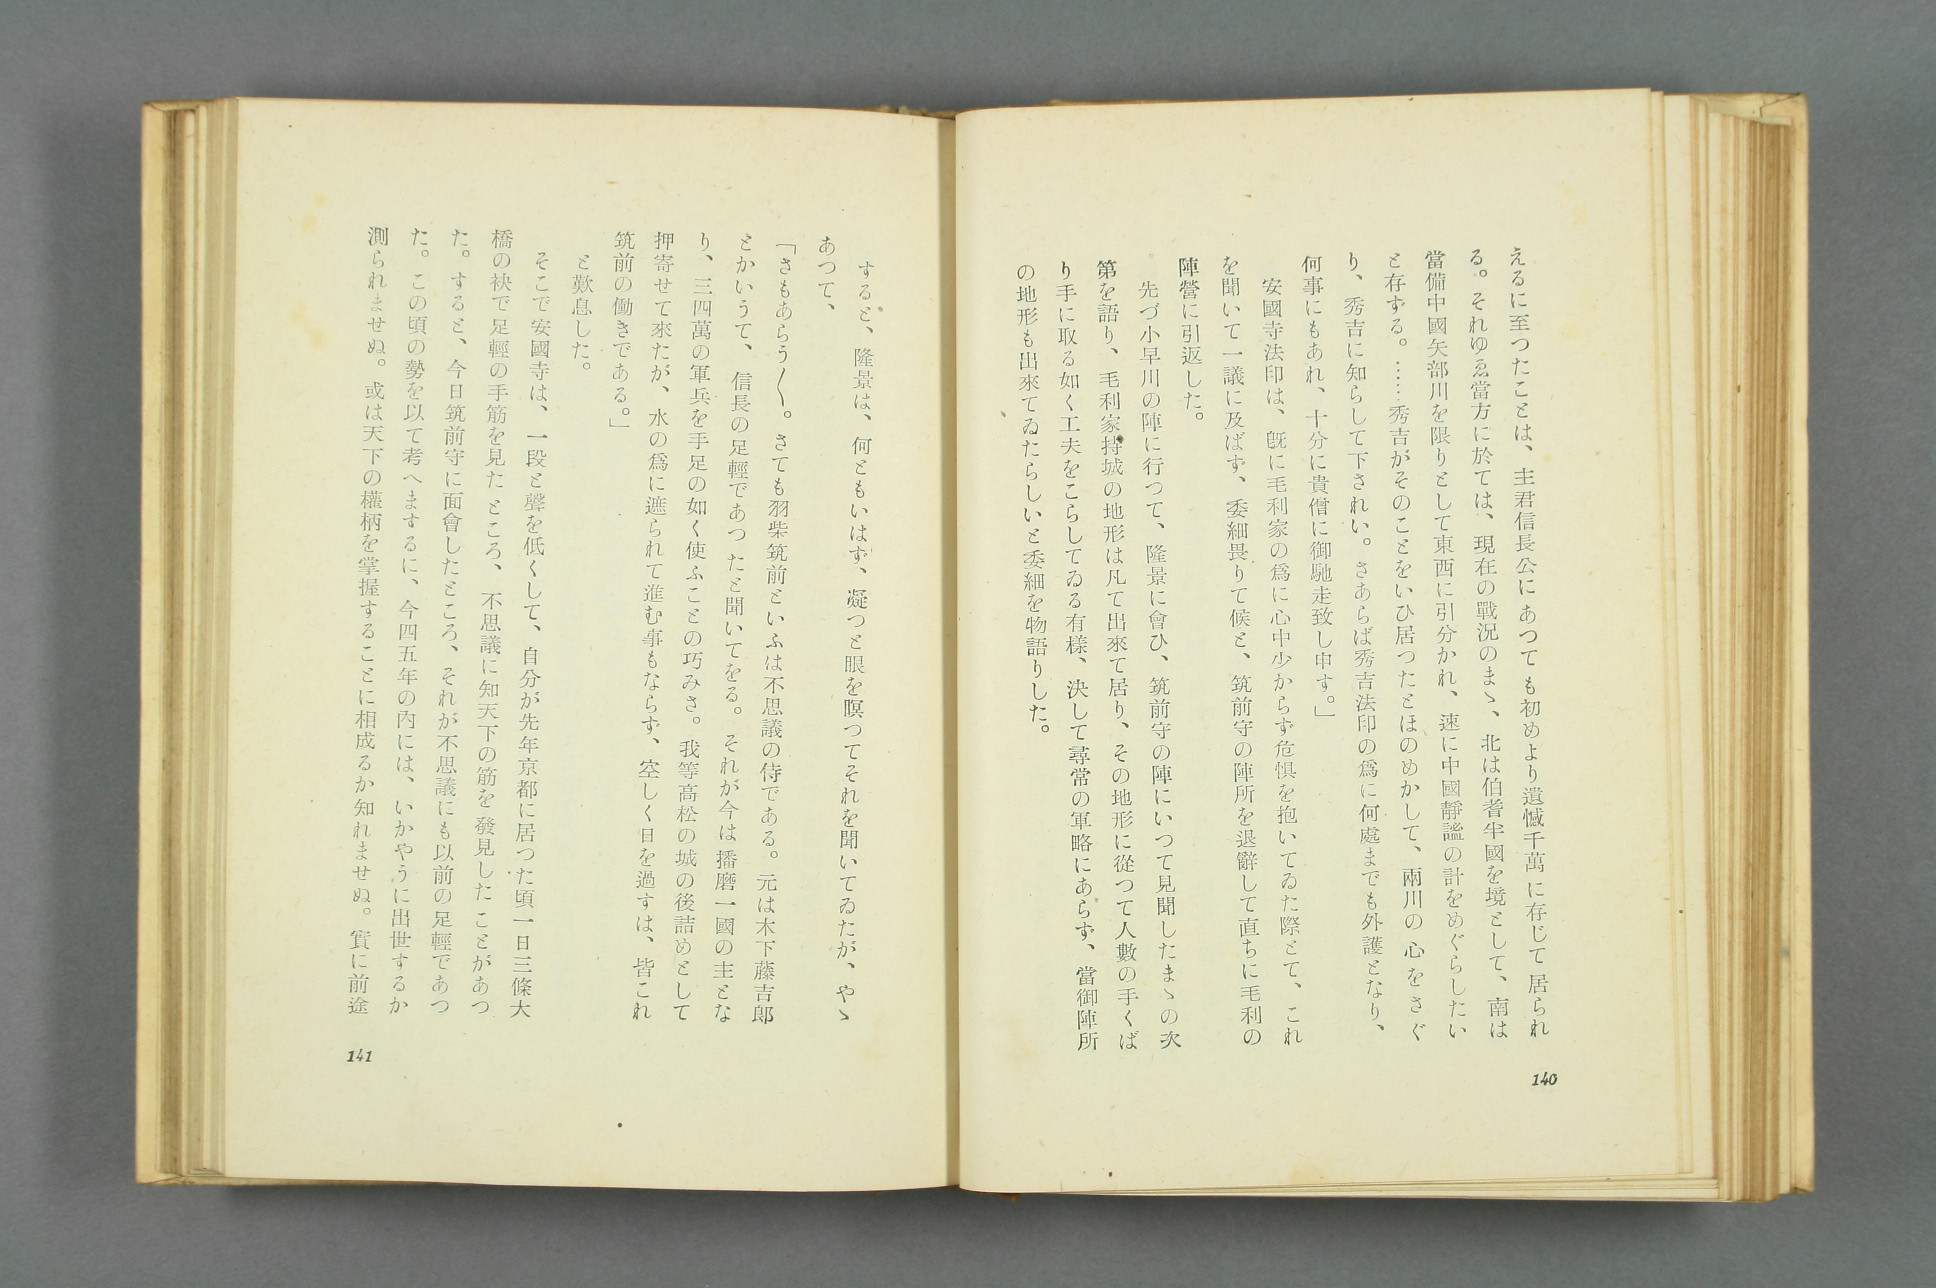 えるに至つたことは、主君信長公にあつても初めより遺憾千萬に存じて居られ
る。それゆゑ當方に於ては、現在の戰況のまゝ、北は伯耆半國を境として、南は
當備中國矢部川を限りとして東西に引分かれ、速に中國靜謐の計をめぐらしたい
と存ずる。……秀吉がそのことをいひ居つたとほのめかして、兩川の心をさぐ
り、秀吉に知らして下されい。さあらば秀吉法印の爲に何處までも外護となり、
何事にもあれ、十分に貴僧に御馳走致し申す。」
安國寺法印は、既に毛利家の爲に心中少からず危惧を抱いてゐた際とて、これ
を聞いて一議に及ばず、委細畏りて候と、筑前守の陣所を退辭して直ちに毛利の
陣營に引返した。
先づ小早川の陣に行つて、隆景に會ひ、筑前守の陣にいつて見聞したまゝの次
第を語り、毛利家持城の地形は凡て出來て居り、その地形に從つて人數の手くば
り手に取る如く工夫をこらしてゐる有樣、決して尋常の軍略にあらず、當御陣所
の地形も出來てゐたらしいと委細を物語りした。
140
すると、隆景は、何ともいはず、凝つと眼を瞑つてそれを聞いてゐたが、やゝ
あつて、
「さもあらう〳〵。さても羽柴筑前といふは不思議の侍である。元は木下藤吉郎
とかいうて、信長の足輕であつたと聞いてをる。それが今は播磨一國の主とな
り、三四萬の軍兵を手足の如く使ふことの巧みさ。我等高松の城の後詰めとして
押寄せて來たが、水の爲に遮られて進む事もならず、空しく日を過すは、皆これ
筑前の働きである。」
と歎息した。
そこで安國寺は、一段と聲を低くして、自分が先年京都に居つた頃一日三條大
橋の袂で足輕の手筋を見たところ、不思議に知天下の筋を發見したことがあつ
た。すると、今日筑前守に面會したところ、それが不思議にも以前の足輕であつ
た。この頃の勢を以て考へまするに、今四五年の內には、いかやうに出世するか
測られませぬ。或は天下の權柄を掌握することに相成るか知れませぬ。實に前途
141